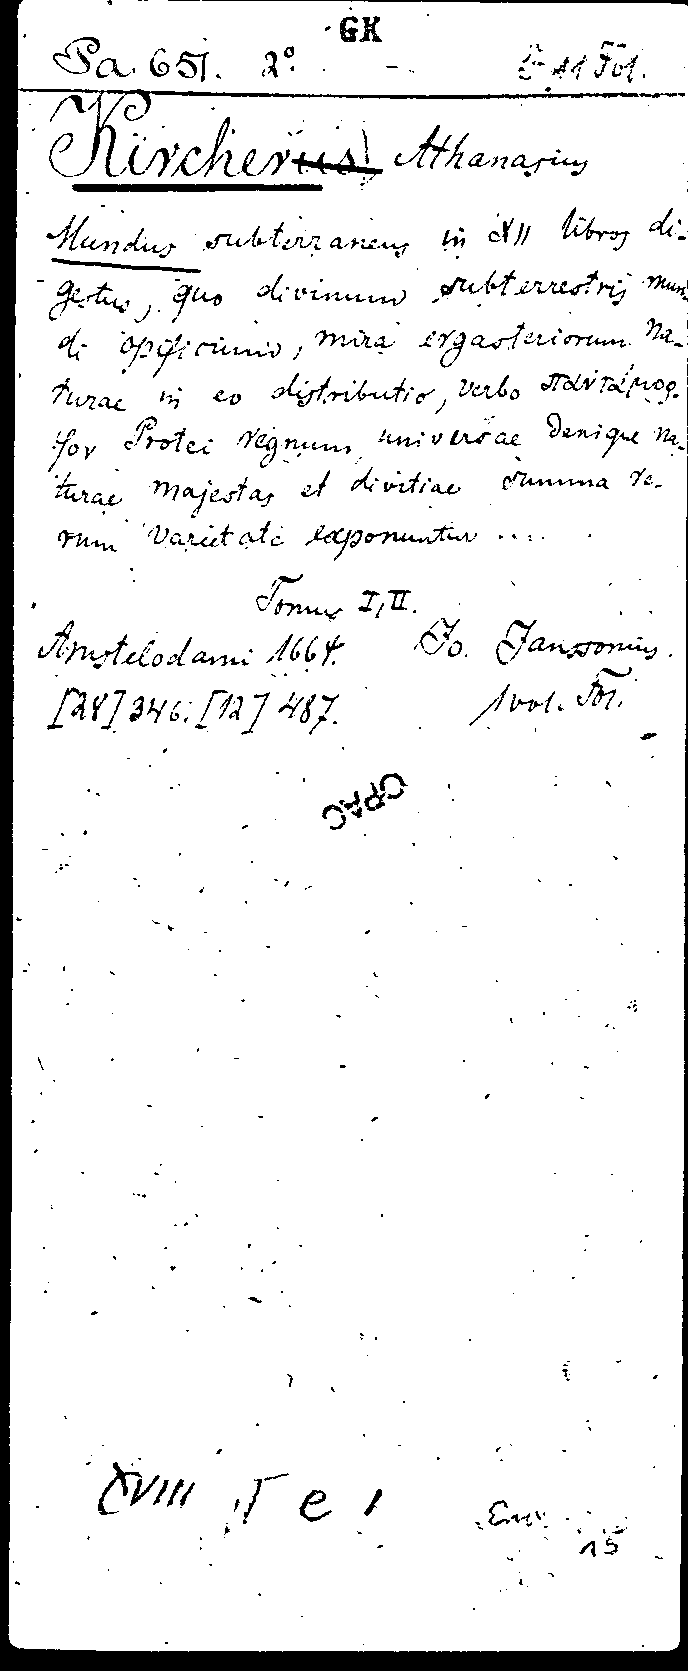 GK
Pa. 651. 2°. - 11 Fol.
Kircherius, Athanasius
Mundus subterraneus in XII libros di-
gestus, quo divinum subterrestris mun
di opificium, mira ergasteriorum na-
turae in eo distributio, verbo παντάμορ-
φον Protei regnum, universae denique na-
turae majestas et divitiae summa re-
rum varietate exponuntur ....
Tomus I, II.
Amstelodami 1664. Jo. Janssonius.
[28] 346. [12] 487. 1 vol. Fol.
OPAC
XVIII T e 1
15